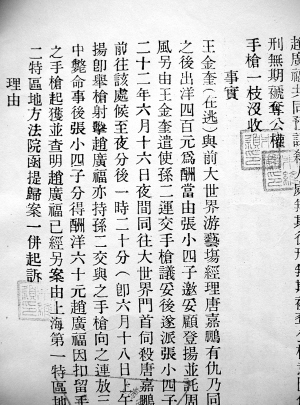 刑無期褫奪公權
手槍一枝沒收
事實
王金奎(在逃)與前大世界游藝場經理唐嘉鵬有仇乃同
之後出洋四百元爲酬當由張小四子邀妥顧登揚並託周
風另由王金奎遣使孫二運交手槍議妥後遂派張小四子
二十二年六月十六日夜間同往大世界門首伺殺唐嘉鵬
前往該處候至夜分後一時二十分(卽六月十八日上午
揚卽舉槍射擊趙廣福亦持孫二交與之手槍向之連放三
中斃命事後張小四子分得酬洋六十元趙廣福因扣留手
之手槍起獲並查明趙廣福已經另案由上海第一特區地
二特區地方法院函提歸案一併起訴
理由